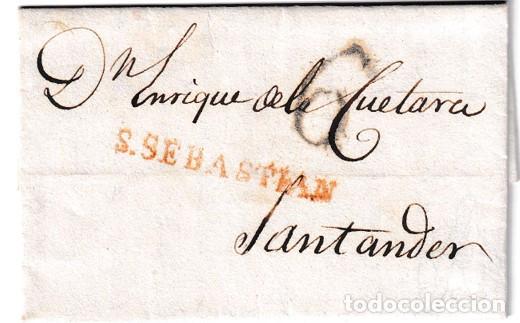 Dn Enrique de la Cuetara
6
S.SEBASTIAN
Santander
todocoleccion